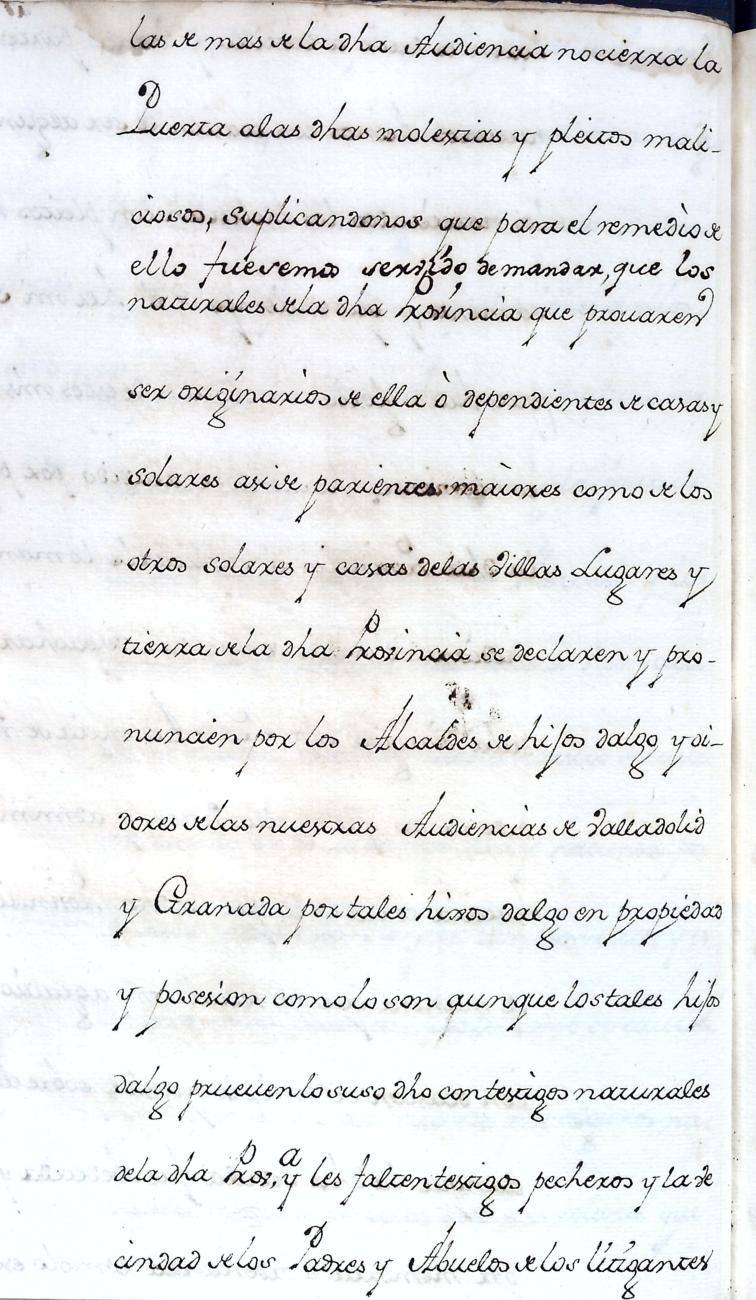 las de mas de la dha Audiencia no cierra la
Puerta a las dhas molestias y pleitos mali-
ciosos, suplicandonos que para el remedìo de
ello fuesemos servído de mandar, que los
naturales de la dha Províncìa que prouaren
ser origínarìos de ella ò dependientes de casas y
solares asi de parientes maìores como de los
otros solares y casas de las Villas Lugares y
tierra de la dha Províncìa se declaren y pro-
nuncien por los Alcaldes de hijos dalgo y oi-
dores de las nuestras Audiencìas de Valladolid
y Granada por tales hixos dalgo en propiedad
y posesìon como lo son aunque los tales hijos
dalgo prueuen lo suso dho con testìgos naturales
de la dha Prov,ª y les falten testigos pecheros y la ve
cindad de los Padres y Abuelos de los lítígantes